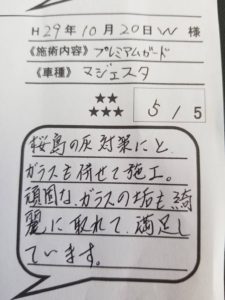 H29年10月20日W 様
《施術内容》プレミアムガード
《車種》マジェスタ
★★
★★★
5 / 5
桜島の灰対策にと
ガラスも併せて施工。
頑固な、ガラスの垢も綺
麗に取れて、満足し
ています。